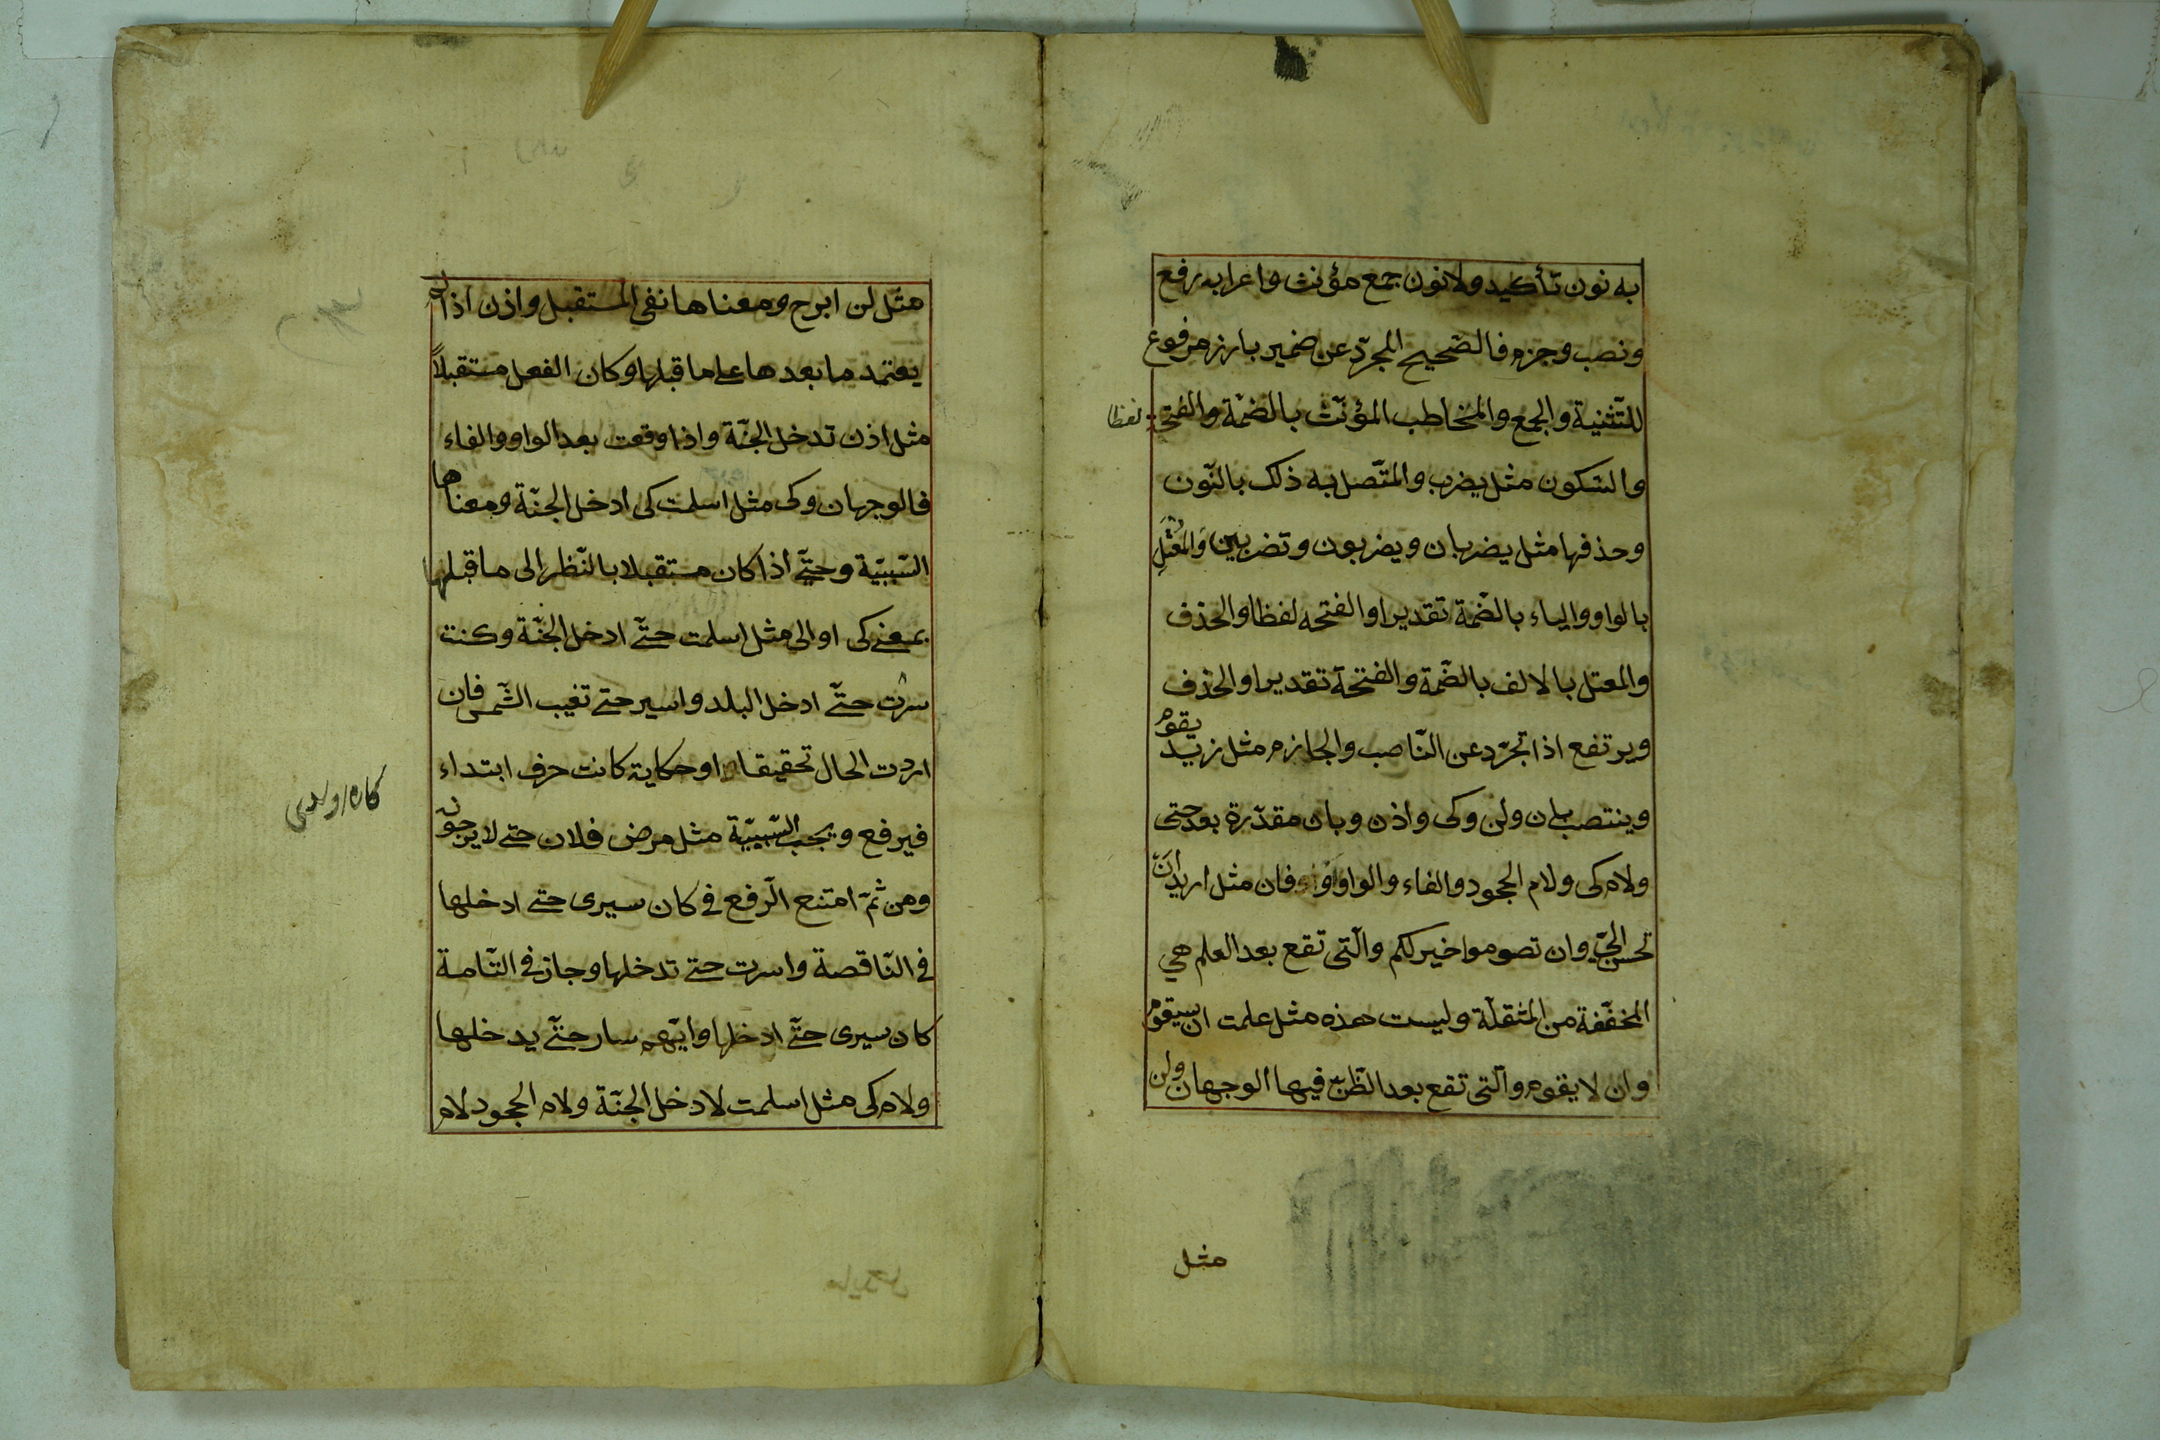 به نون تأكيد ولا نون جمع مؤنث واعرابه رفع
ونصب وجزم فالصّحيح المجرّد عن ضمير بارز مرفوع
للتّثنية والجمع والمخاطب المؤنّث بالضّمة والفتحة لفظا
والسّكون مثل يضرب والمتّصل به ذلك بالنّون
وحذفها مثل يضربان ويضربون وتضربين والمعتل
بالواو والياء بالضّمة تقديرا والفتحه لفظا والحذف
والمعتل بالالف بالضّمة والفتحة تقديرا والحذف
ويرتفع اذا تجرّد عن النّاصب والجازم مثل زيد يقوم
وينتصب بان ولن وكى واذن وبان مقدّرة بعد حتى
ولام كى ولام الجحود والفاء والواو واو فان مثل اريد ان
تحسن الىّ وان تصوموا خير لكم والّتى تقع بعد العلم هي
المخفّفة من المثقلّة وليست هذه مثل علمت ان سيقوم
وان لا يقوم والّتى تقع بعد الظّن ففيها الوجهان ولن
مثل
مثل لن ابرح ومعناها نفى المستقبل واذن اذا لم
يعتمد ما بعدها على ما قبلها وكان الفعل مستقبلاً
مثل اذن تدخل الجنّة واذا وقعت بعد الواو والفاء
فالوجهان وكى مثل اسلمت كى ادخل الجنّة ومعناها
السّببيّة وحتّے اذا كان مستقبلا بالنّظر الى ما قبلها
بمعنے كى او الى مثل اسلمت حتّے ادخل الجنّة وكنت
سرت حتّے ادخل البلد واسير حتے تغيب الشّمس فان
اردت الحال تحقيقا او حكاية كانت حرف ابتداء
فيرفع ويجب السّببيّة مثل مرض فلان حتے لا يرجونه
ومن ثمّ امتنع الرّفع فى كان سيرى حتے ادخلها
فى النّاقصة واسرت حتے تدخلها وجاز فى التّامة
كان سيرى حتّے ادخلها وايّهم سار حتّے يدخلها
ولام كى مثل اسلمت لادخل الجنّة ولام الجحود لام